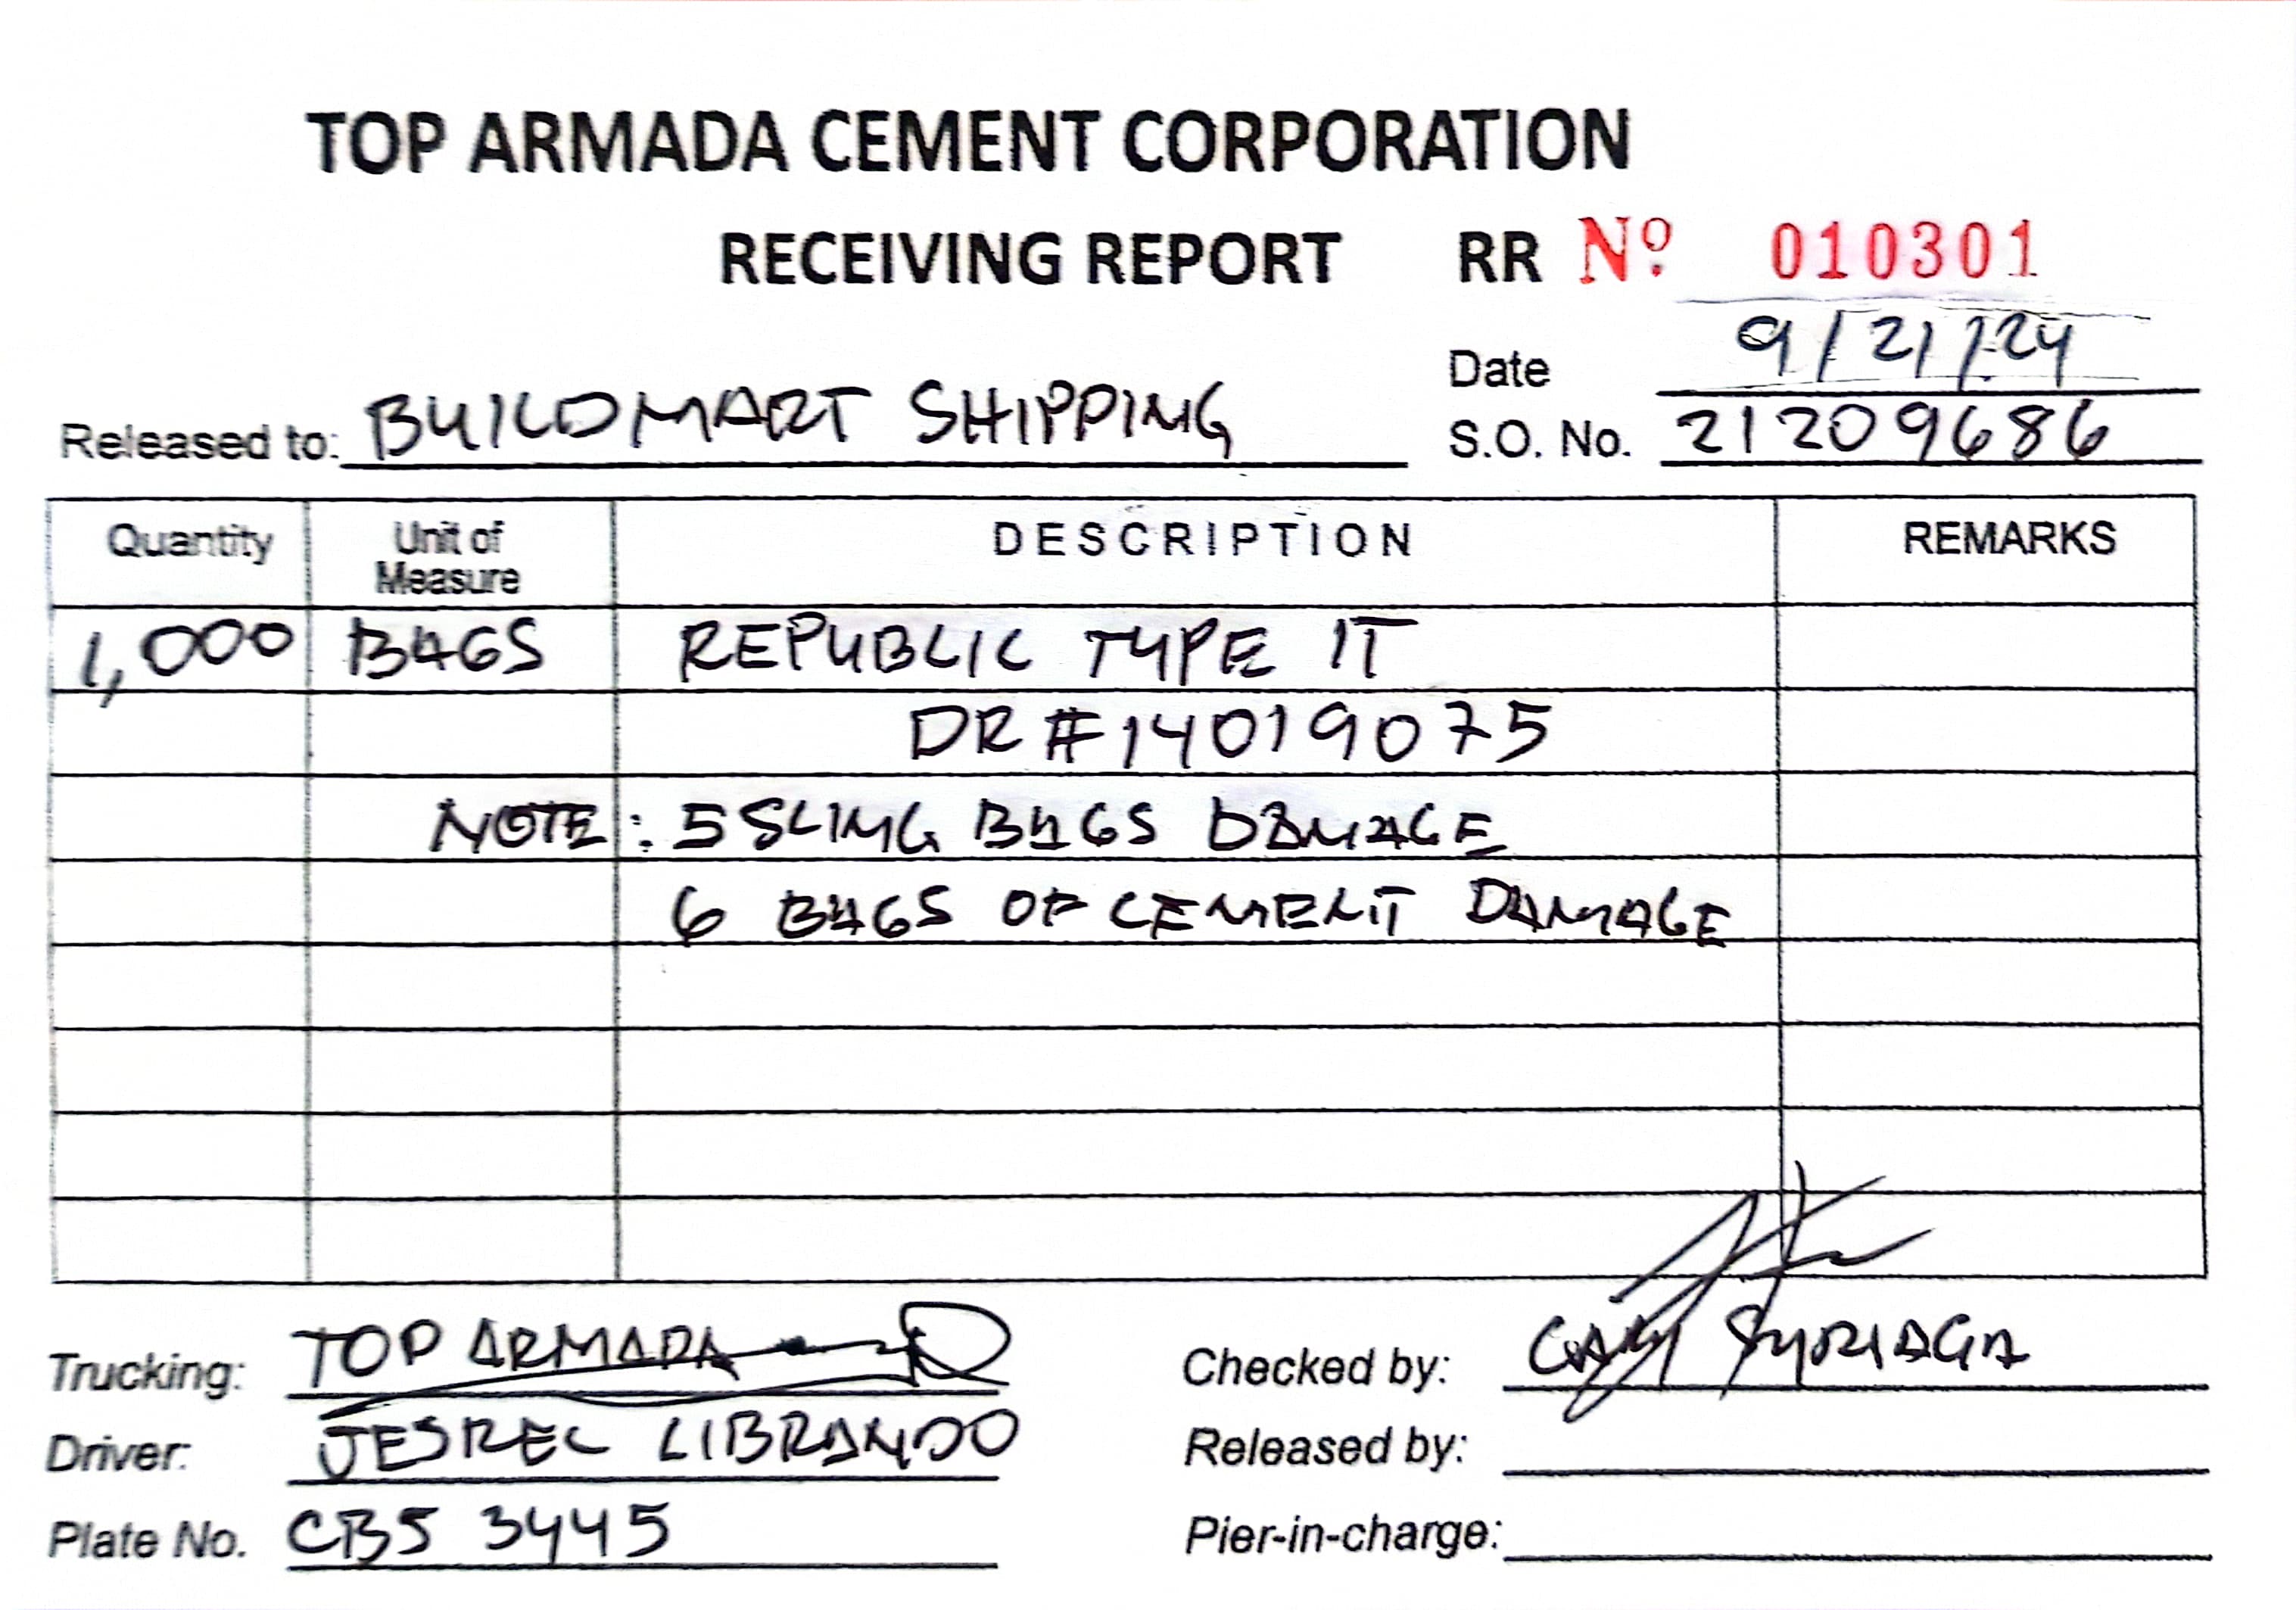 TOP ARMADA CEMENT CORPORATION
RECEIVING REPORT RR Nº 010301
Date 9/21/24
Released to: BUILDMART SHIPPING
S.O. No. 21209686
Quantity Unit of Measure DESCRIPTION REMARKS
1,000 BAGS REPUBLIC TYPE IT
DR #14019075
NOTE: 5 SLING BAGS DAMAGE
6 BAGS OF CEMENT DAMAGE
Trucking: TOP ARMADA
Checked by: SYRIAGA
Driver: JESREL LIBRANDO
Released by:
Plate No. CBS 3445
Pier-in-charge: